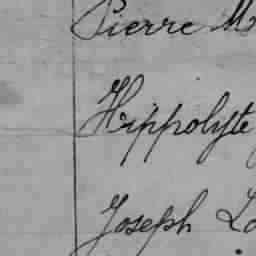 Pierre M
Hippolyte
Joseph Lo